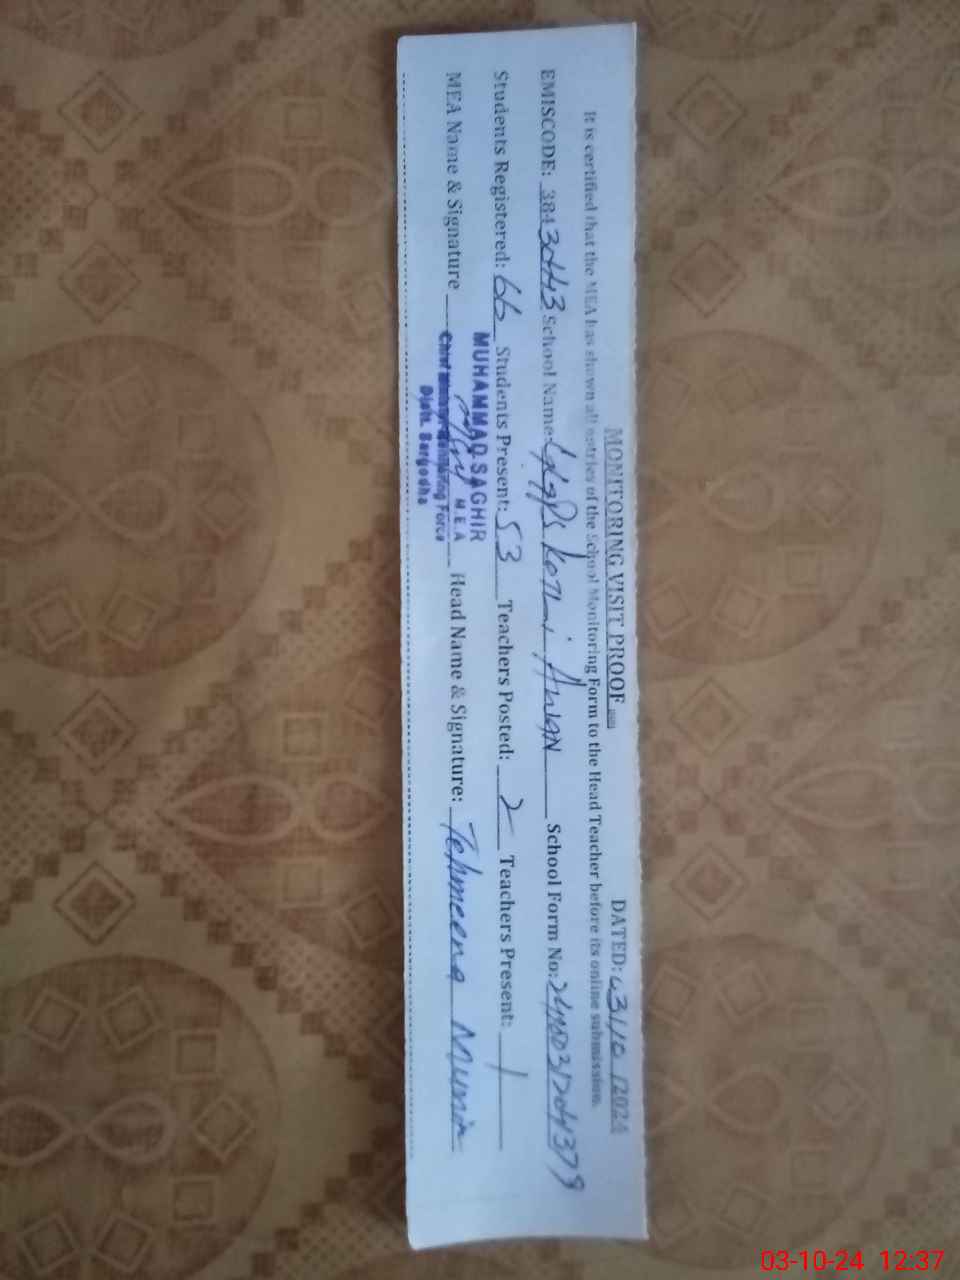 MONITORING VISIT PROOF DATED: 03/10/2024
It is certified that the MEA has shown all entries of the School Monitoring Form to the Head Teacher before its online submission.
EMISCODE: School Name: Awan School Form No:
Students Registered: 66 Students Present: 53 Teachers Posted: 2 Teachers Present: 1
MEA Name & Signature Head Name & Signature: Tehmeena Munir
MUHAMMAD SAGHIR
M.E.A
Chief Monitoring Force
Distt. Sargodha
03-10-24 12:37